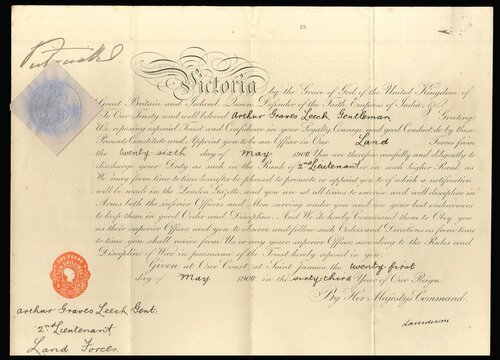 15
Victoria by the Grace of God, of the United Kingdom of
Great Britain and Ireland, Queen, Defender of the Faith, Empress of India, &c.
To Our Trusty and well beloved Arthur Graves Leech, Gentleman Greeting:
We reposing especial Trust and Confidence in your Loyalty, Courage, and good Conduct, do by these
Presents Constitute and Appoint you to be an Officer in Our Land Forces from
the twenty sixth day of May 1900 You are therefore carefully and diligently to
discharge your Duty as such in the Rank of 2nd Lieutenant or in such higher Rank as
We may from time to time hereafter be pleased to promote or appoint you to, of which a notification
will be made in the London Gazette, and you are at all times to exercise and well discipline in
Arms both the inferior Officers and Men serving under you and use your best endeavours
to keep them in good Order and Discipline. And We do hereby Command them to Obey you
as their superior Officer, and you to observe and follow such Orders and Directions as from time
to time you shall receive from Us, or any your superior Officer, according to the Rules and
Discipline of War, in pursuance of the Trust hereby reposed in you.
Given at Our Court, at Saint James's, the twenty first
day of May 1900 in the sixty third Year of Our Reign.
By Her Majesty's Command.
Lansdowne
Arthur Graves Leech, Gent.
2nd Lieutenant
Land Forces.